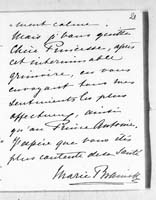 21
ment calme.
Mais je vous quitte
Chère Princesse, après
cet interminable
grimoire, en vous
envoyant tous mes
sentiments les plus
affectueux, ainsi
qu'au Prince Antoine,
j'espère que vous êtes
plus contente de sa santé
Marie